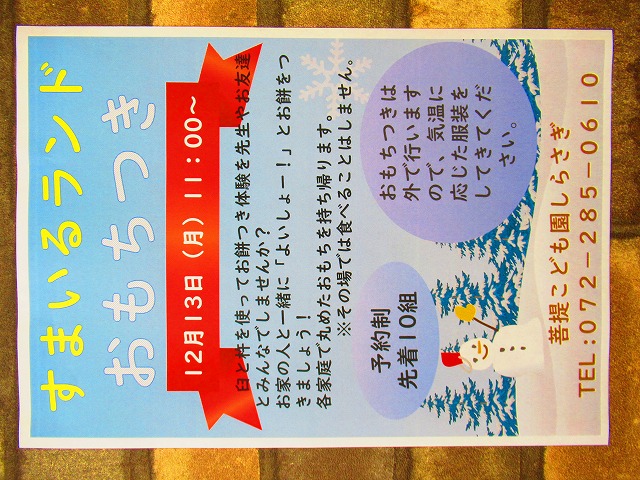 すまいるランド
おもちつき
12月13日（月）11：00～
臼と杵を使ってお餅つき体験を先生やお友達
とみんなでしませんか？
お家の人と一緒に「よいしょー！」とお餅をつ
きましょう！
各家庭で丸めたおもちを持ち帰ります。
※その場では食べることはしません。
おもちつきは
外で行います
ので、気温に
応じた服装を
してきてくだ
さい。
予約制
先着10組
菩提こども園しらさぎ
TEL:072－285－0610